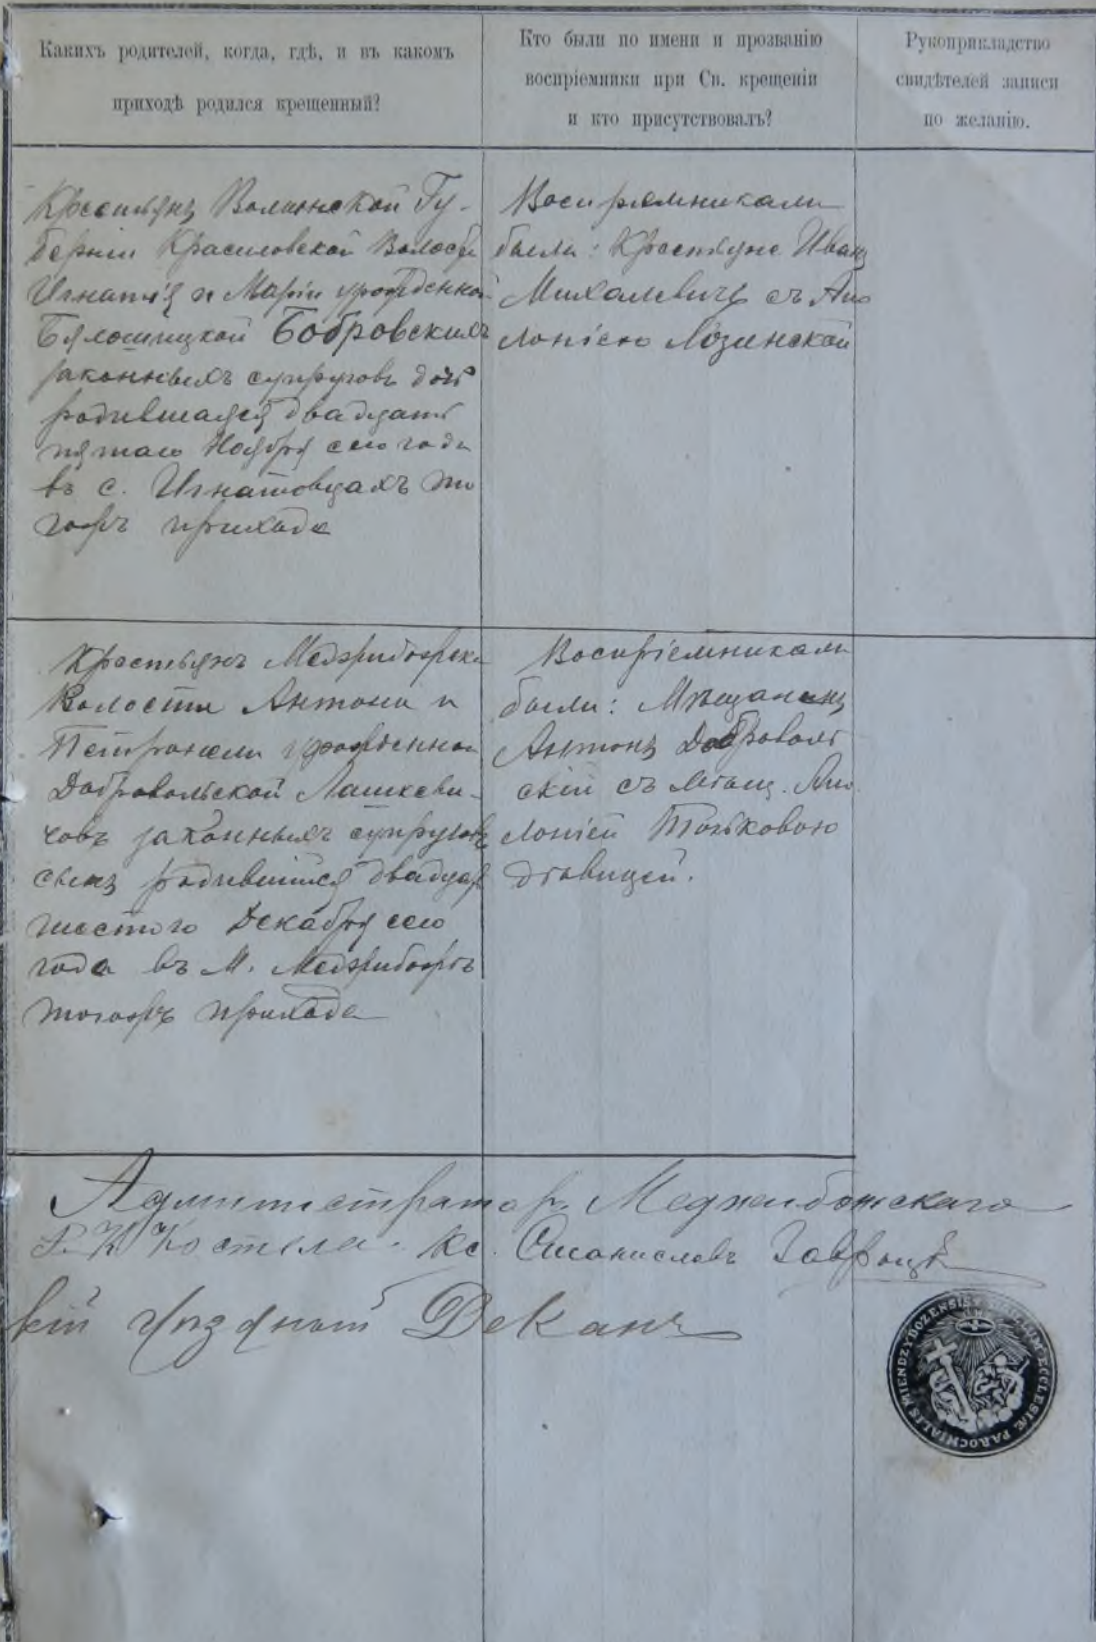 Какихъ родителей, когда, гдѣ, и въ какомъ
приходѣ родился крещенный?
Кто были по имени и прозванію
воспріемники при Св. крещеніи
и кто присутствовалъ?
Рукоприкладство
свидѣтелей записи
по желанію.
Крестьянъ Волынской Гу-
берніи Красиловской Волости
Игнатія и Маріи урожденной
Бялошицкой Бобровскихъ
законныхъ супруговъ дочь
родившаяся двадцать
пятаго Ноября сего года
въ с. Игнатовцахъ то
гожъ прихода
Воспріемниками
были: Крестьяне Иванъ
Михалевичъ съ Апо
лоніею Лозинской
Крестьянъ Меджибожской
Волости Антона и
Петронели урожденной
Добровольской Лашкеви-
човъ законныхъ супруговъ
сынъ родившійся двадцать
шестого Декабря сего
года въ М. Меджибожѣ
тогожъ прихода
Воспріемниками
были: Мѣщанинъ
Антонъ Доброволь
скій съ мѣщ. Апо
лоніей
дѣвицей.
Администраторъ Меджибожскаго
Р. К. Костела Кс. Станиславъ
кій уѣздный Деканъ
SIGILLUM ECCLESIÆ PAROCHIALIS MIENDZYBOZENSIS